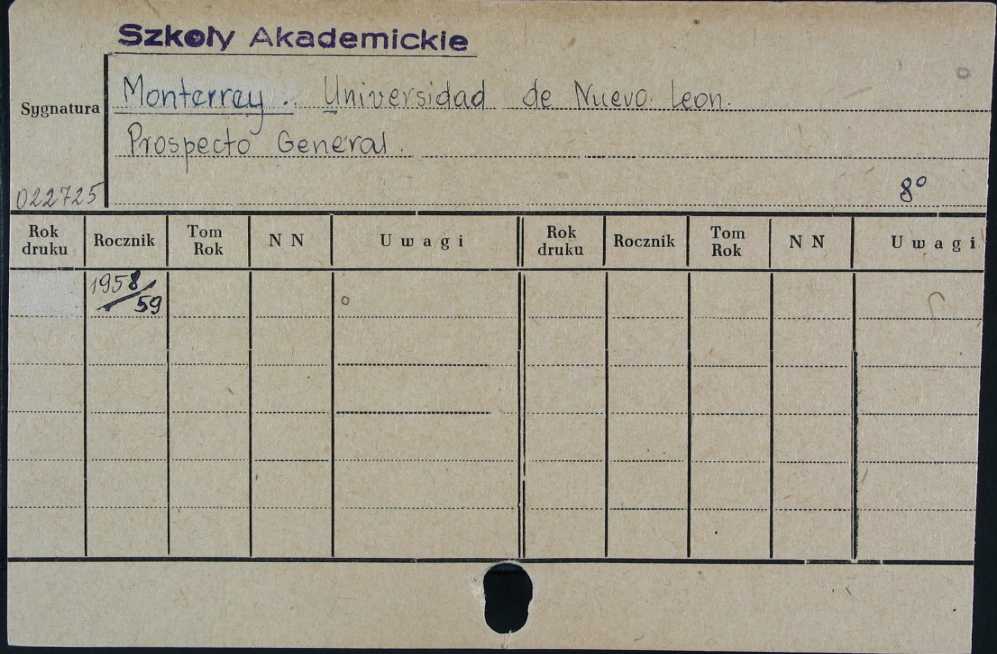 Szkoły Akademickie
Sygnatura
Monterrey. Universidad de Nuevo Leon.
Prospecto General.
022725
8°
Rok druku Rocznik Tom Rok N N Uwagi Rok druku Rocznik Tom Rok N N Uwagi
1958/59